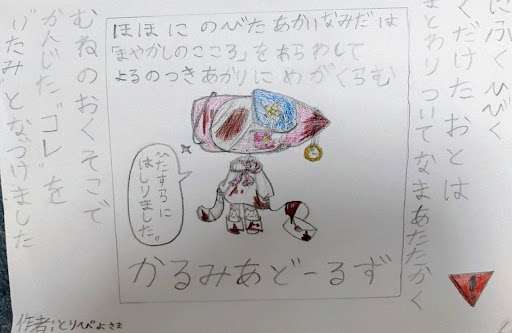 にぶくひびく
くだけたおとは
まとわりついてなまあたたかく
ほほにのびたあかいなみだは
「まやかしのこころ」をあらわして
よるのつきあかりにめがくらむ
ひたすらに
はしりました。
かるみあどーるず
むねのおくそこで
かんじた"コレ"を
"いたみ"となづけました
作者:とりぴよさま